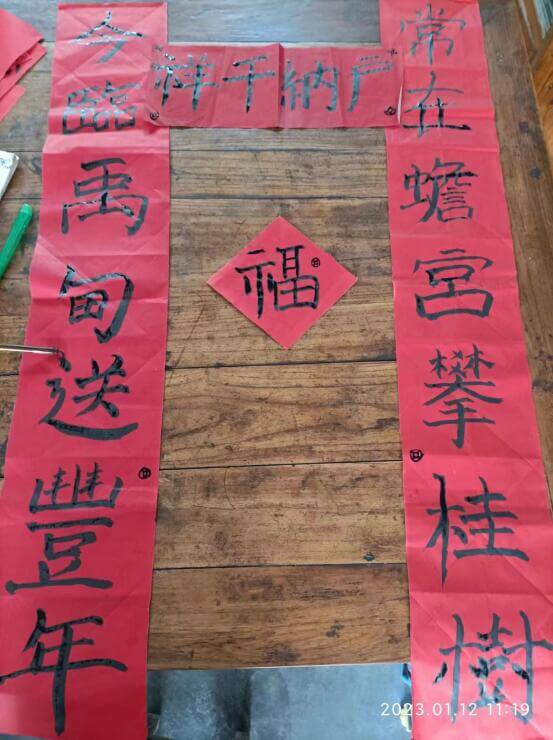 常在蟾宮攀桂樹
今臨禹甸送豐年
戶納千祥
福
2023.01.12 11:19